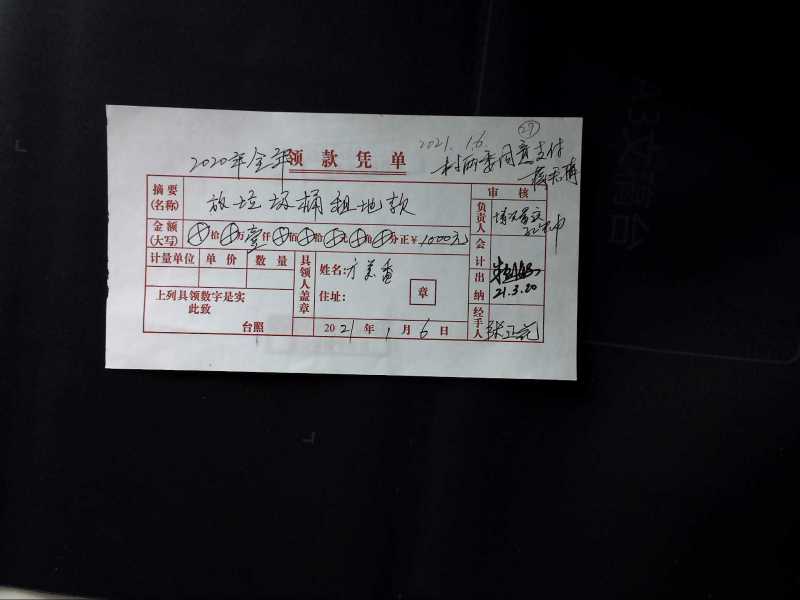 27
2021.1.6
2020年全年领款凭单
村两委同意支付
摘要(名称) 放垃圾桶租地款
审核
负责人
金额(大写) 拾万壹仟佰拾元角分正￥1000元
会计
计量单位 单价 数量
具领人盖章
姓名:方美香
住址:
章
出纳
21.3.20
上列具领数字是实
此致
台照
2021年1月6日
经手人